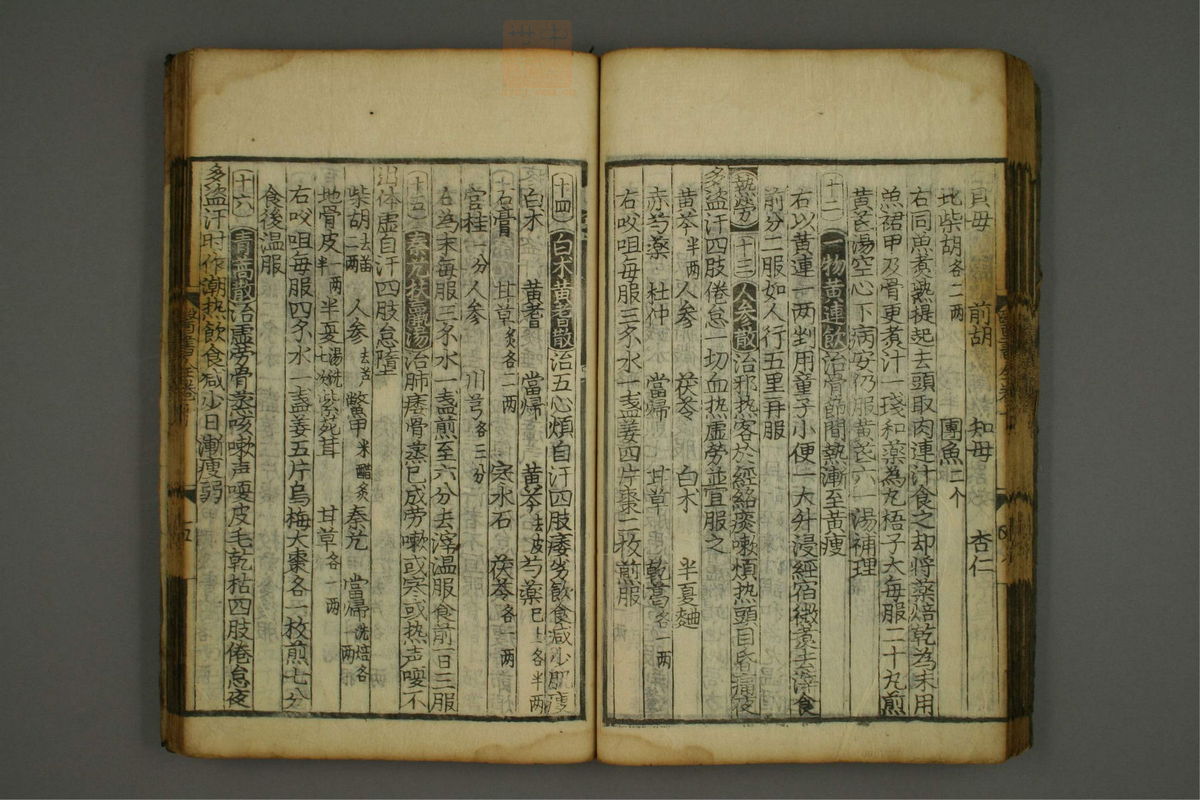 貝母　前胡　知母　杏仁
北柴胡各二两　團魚二个
右同魚煮熟提起去頭取肉連汁食之却将藥焙乾為末用
魚裙甲及骨更煮汁一琖和藥為丸梧子大每服二十丸煎
黄芪湯空心下病安仍服黄芪六一湯補理
十二　一物黄連飲治骨節間熱漸至黄瘦
右以黄連一两剉用童子小便一大升浸經宿微煮去滓食
前分二服如人行五里再服
熱勞　十三　人参散治邪热客於經絡痰嗽煩热頭目昏痛夜
多盗汗四肢倦怠一切血热虚勞並宜服之
黄芩半两　人参　茯苓　白朮　半夏麯
赤芍藥　杜仲　當帰　甘草　乾葛各一两
右㕮咀每服三戔水一盏姜四片棗二枚煎服
十四　白朮黄耆散治五心煩自汗四肢痿劣飲食减少肌瘦
白朮　黄耆　當帰　黄芩去皮　芍藥已上各半两
石膏　甘草炙各二两　寒水石　茯苓各一两
官桂一分　人参　川芎各三分
右為末每服三戔水一盏煎至六分去滓温服食前一日三服
十五　秦艽扶羸湯治肺痿骨蒸已成劳嗽或寒或热声嗄不
出体虚自汗四肢怠墮
柴胡去苗二两　人参去芦　鱉甲米醋炙　秦艽　當帰洗焙各
地骨皮半　两半夏七次湯洗　紫苑茸　甘草各一两
右㕮咀每服四戔水一盏姜五片烏梅大棗各一枚煎七分
食後温服
十六　青蒿散治虚劳骨蒸咳嗽声嗄皮毛乾枯四肢倦怠夜
多盗汗时作潮热飲食减少日漸瘦弱